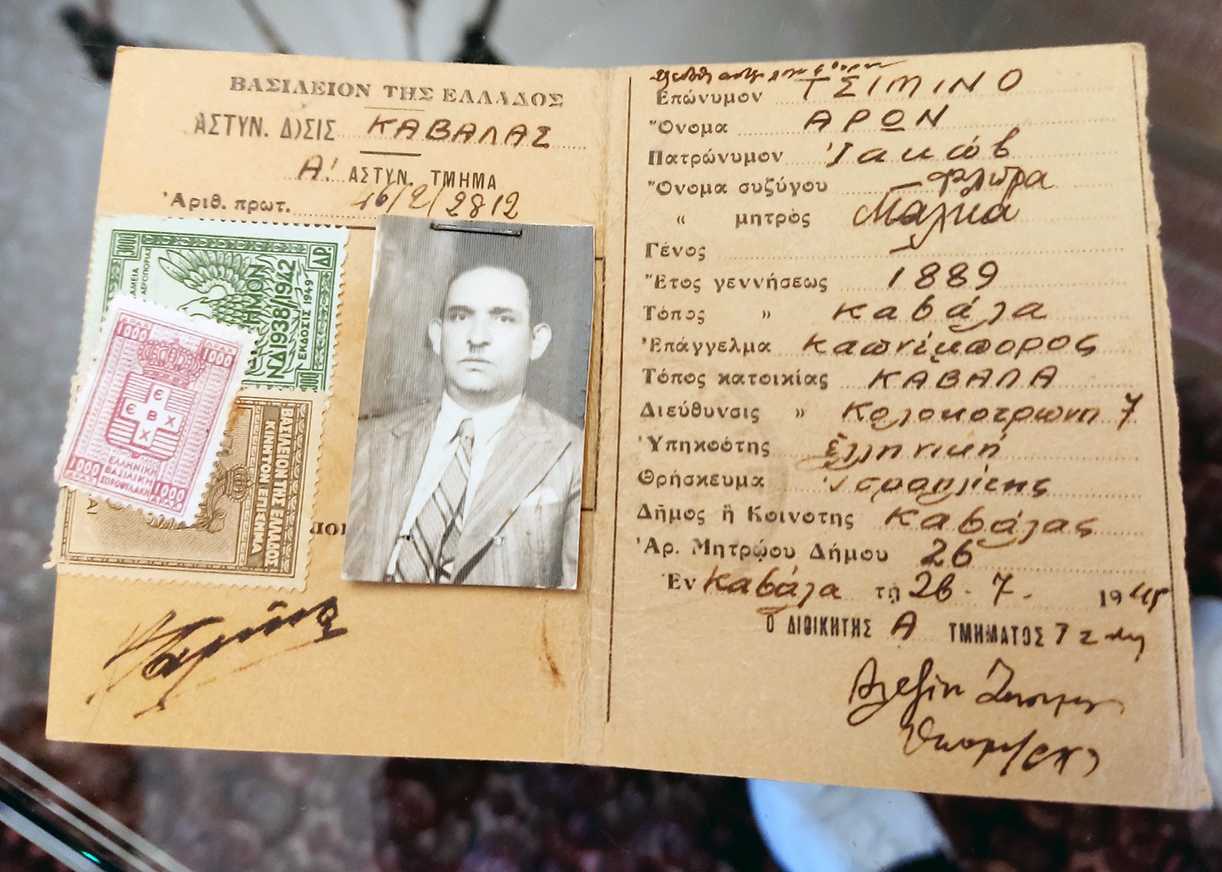 ΒΑΣΙΛΕΙΟΝ ΤΗΣ ΕΛΛΑΔΟΣ
ΑΣΤΥΝ. Δ)ΣΙΣ ΚΑΒΑΛΑΣ
Α! ΑΣΤΥΝ. ΤΜΗΜΑ
Ἀριθ. πρωτ. 46/2/2812
ΔΡ
ΝΔ 1938/1942
ΕΚΔΟΣΙΣ 1949
1000 1000
Ε Β Χ
Ε Χ
ΕΛΛΗΝΙΚΗ
ΒΑΣΙΛΙΚΗ
ΧΩΡΟΦΥΛΑΚΗ
1000 1000
ΒΑΣΙΛΕΙΟΝ ΤΗΣ ΕΛΛΑΔΟΣ
ΚΙΝΗΤΟΝ ΕΠΙΣΗΜΑ
Ἐπώνυμον ΤΣΙΜΙΝΟ
Ὄνομα ΑΡΩΝ
Πατρώνυμον Ἰακώβ
Ὄνομα συζύγου Φλώρα
" μητρὸς Μάλκα
Γένος
Ἔτος γεννήσεως 1889
Τόπος " Καβάλα
Ἐπάγγελμα Καπνέμπορος
Τόπος κατοικίας ΚΑΒΑΛΑ
Διεύθυνσις " Κολοκοτρώνη 7
Ὑπηκοότης Ἑλληνική
Θρήσκευμα Ἰσραηλίτης
Δῆμος ἢ Κοινότης Καβάλας
Ἀρ. Μητρώου Δήμου 26
Ἐν Καβάλα τῇ 26. 7. 1945
Ο ΔΙΟΙΚΗΤΗΣ Α ΤΜΗΜΑΤΟΣ